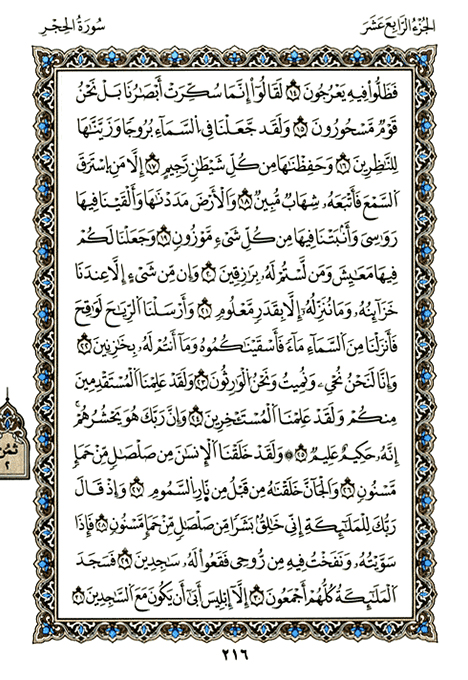 الجُزْءُ الرَّابِعَ عَشَرَ
سُورَةُ الحِجْرِ
فَظَلُّوا۟ فِيهِ يَعْرُجُونَ ١٤ لَقَالُوٓا۟ إِنَّمَا سُكِّرَتْ أَبْصَـٰرُنَا بَلْ نَحْنُ
قَوْمٌ مَّسْحُورُونَ ١٥ وَلَقَدْ جَعَلْنَا فِى ٱلسَّمَآءِ بُرُوجًا وَزَيَّنَّـٰهَا
لِلنَّـٰظِرِينَ ١٦ وَحَفِظْنَـٰهَا مِن كُلِّ شَيْطَـٰنٍ رَّجِيمٍ ١٧ إِلَّا مَنِ ٱسْتَرَقَ
ٱلسَّمْعَ فَأَتْبَعَهُۥ شِهَابٌ مُّبِينٌ ١٨ وَٱلْأَرْضَ مَدَدْنَـٰهَا وَأَلْقَيْنَا فِيهَا
رَوَٰسِىَ وَأَنۢبَتْنَا فِيهَا مِن كُلِّ شَىْءٍ مَّوْزُونٍ ١٩ وَجَعَلْنَا لَكُمْ
فِيهَا مَعَـٰيِشَ وَمَن لَّسْتُمْ لَهُۥ بِرَٰزِقِينَ ٢٠ وَإِن مِّن شَىْءٍ إِلَّا عِندَنَا
خَزَآئِنُهُۥ وَمَا نُنَزِّلُهُۥٓ إِلَّا بِقَدَرٍ مَّعْلُومٍ ٢١ وَأَرْسَلْنَا ٱلرِّيَـٰحَ لَوَٰقِحَ
فَأَنزَلْنَا مِنَ ٱلسَّمَآءِ مَآءً فَأَسْقَيْنَـٰكُمُوهُ وَمَآ أَنتُمْ لَهُۥ بِخَـٰزِنِينَ ٢٢
وَإِنَّا لَنَحْنُ نُحْىِۦ وَنُمِيتُ وَنَحْنُ ٱلْوَٰرِثُونَ ٢٣ وَلَقَدْ عَلِمْنَا ٱلْمُسْتَقْدِمِينَ
مِنكُمْ وَلَقَدْ عَلِمْنَا ٱلْمُسْتَـْٔخِرِينَ ٢٤ وَإِنَّ رَبَّكَ هُوَ يَحْشُرُهُمْ ۚ
إِنَّهُۥ حَكِيمٌ عَلِيمٌ ٢٥ وَلَقَدْ خَلَقْنَا ٱلْإِنسَـٰنَ مِن صَلْصَـٰلٍ مِّنْ حَمَإٍ
مَّسْنُونٍ ٢٦ وَٱلْجَآنَّ خَلَقْنَـٰهُ مِن قَبْلُ مِن نَّارِ ٱلسَّمُومِ ٢٧ وَإِذْ قَالَ
رَبُّكَ لِلْمَلَـٰٓئِكَةِ إِنِّى خَـٰلِقٌۢ بَشَرًا مِّن صَلْصَـٰلٍ مِّنْ حَمَإٍ مَّسْنُونٍ ٢٨ فَإِذَا
سَوَّيْتُهُۥ وَنَفَخْتُ فِيهِ مِن رُّوحِى فَقَعُوا۟ لَهُۥ سَـٰجِدِينَ ٢٩ فَسَجَدَ
ٱلْمَلَـٰٓئِكَةُ كُلُّهُمْ أَجْمَعُونَ ٣٠ إِلَّآ إِبْلِيسَ أَبَىٰٓ أَن يَكُونَ مَعَ ٱلسَّـٰجِدِينَ ٣١
ثمن
٢
٢١٦